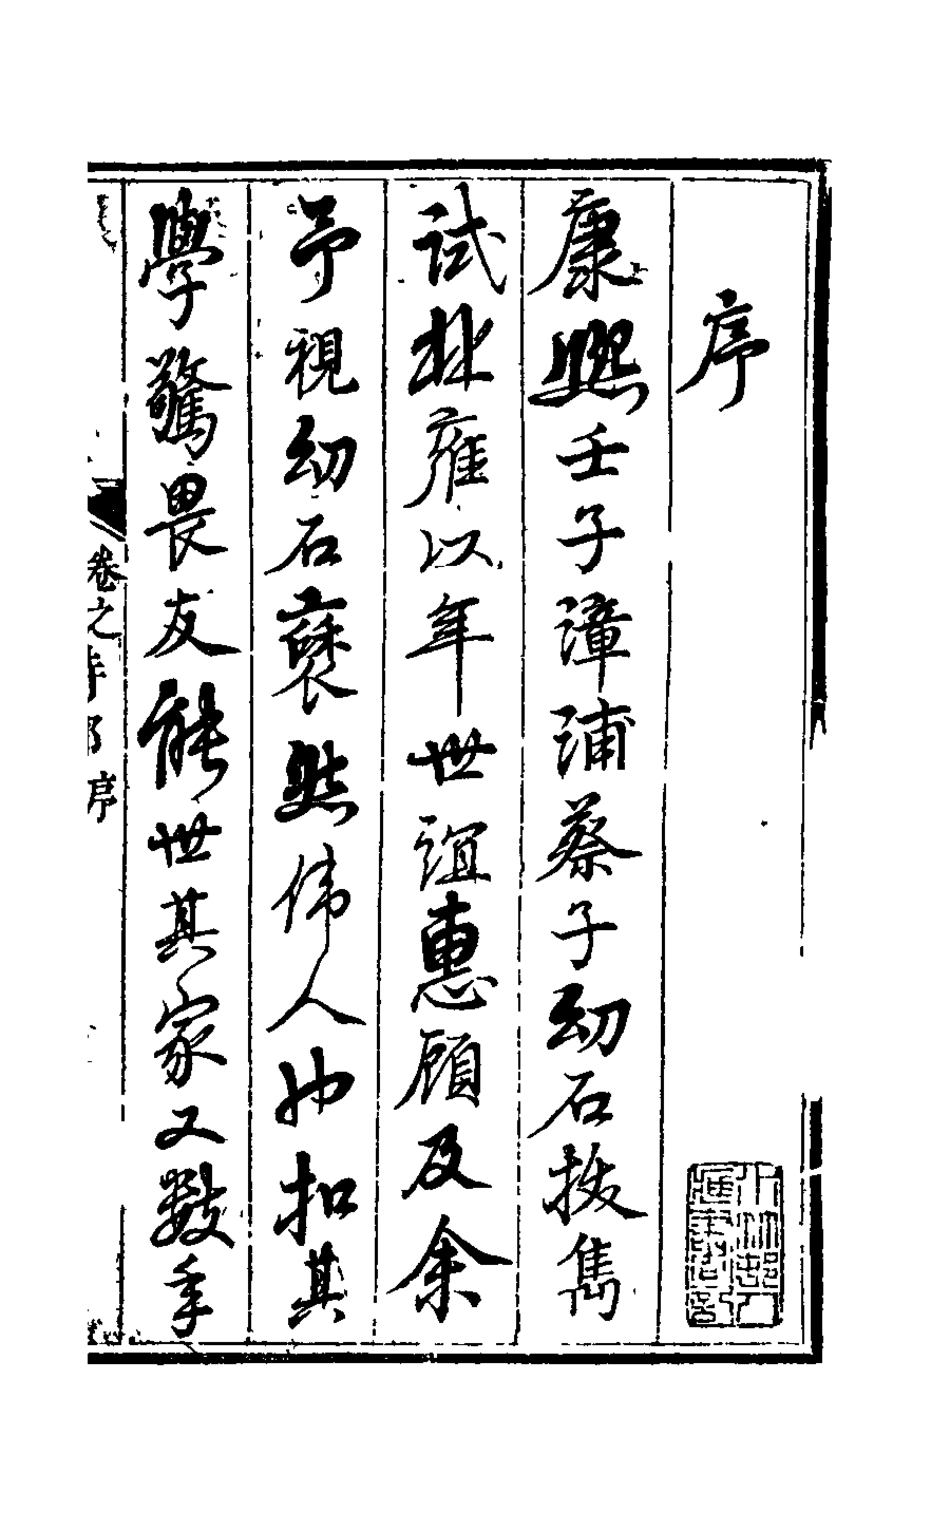 序
康熙壬子漳浦蔡子幼石拔雋
試北雍以年世誼惠顧及余
予視幼石褎然偉人也扣其
學驚畏友能世其家又數年
卷之
序